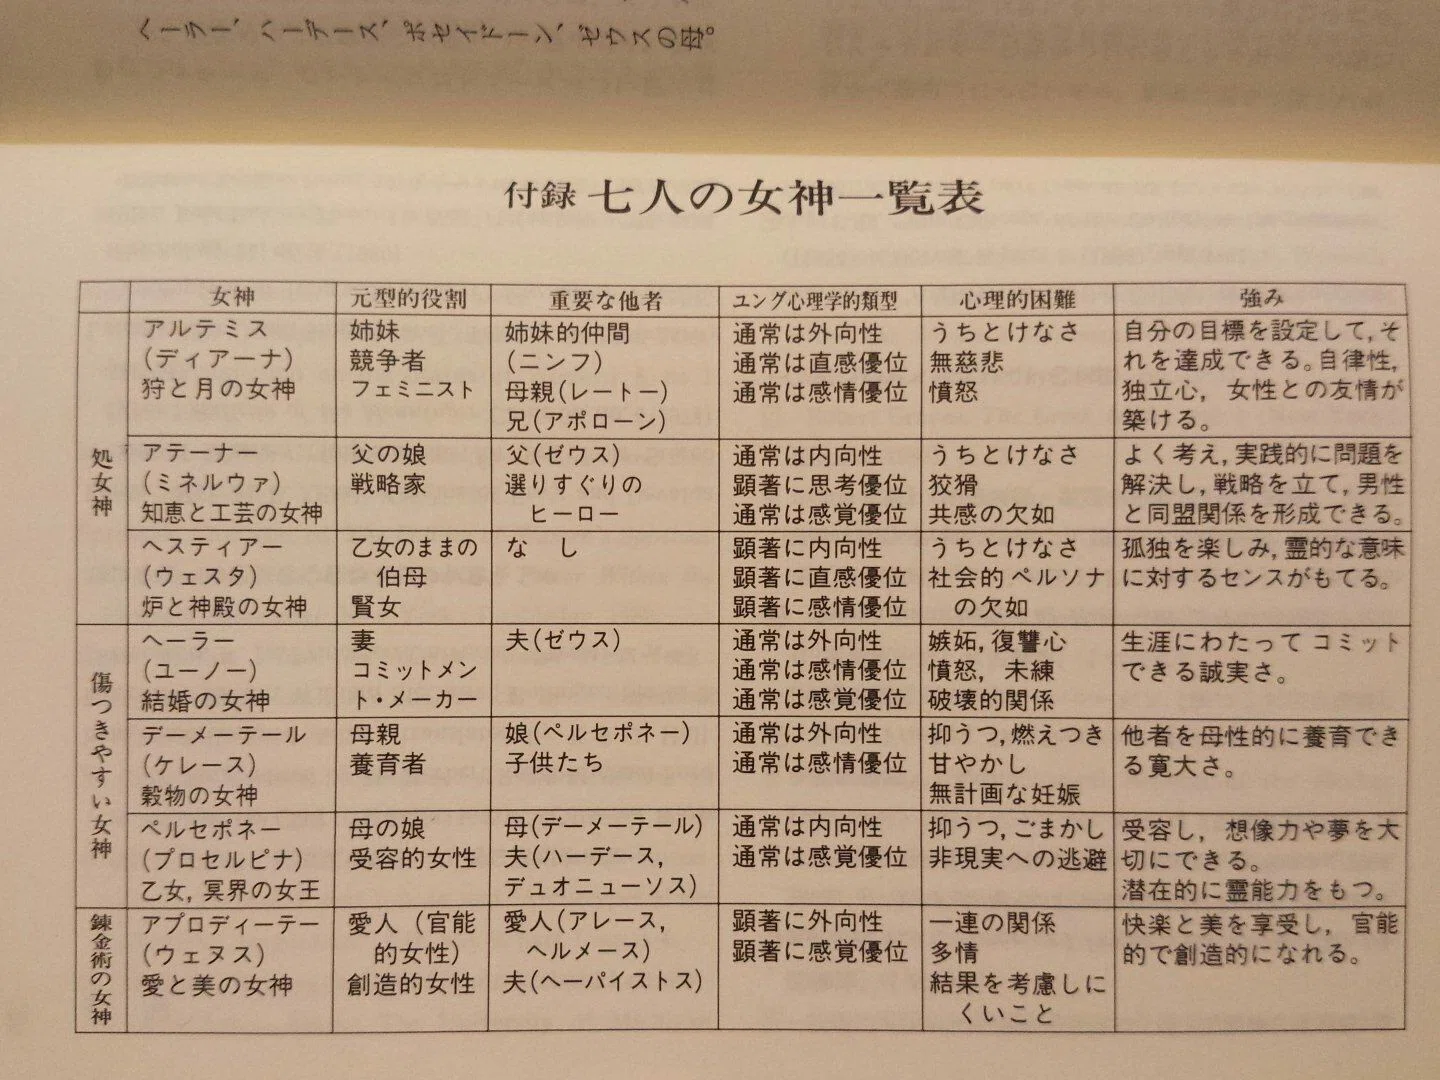 ヘーラー、ハーデース、ポセイドーン、ゼウスの母。
付録 七人の女神一覧表
女神 元型的役割 重要な他者 ユング心理学的類型 心理的困難 強み
処女神
アルテミス
(ディアーナ)
狩と月の女神
姉妹
競争者
フェミニスト
姉妹的仲間
(ニンフ)
母親(レートー)
兄(アポローン)
通常は外向性
通常は直感優位
通常は感情優位
うちとけなさ
無慈悲
憤怒
自分の目標を設定して,そ
れを達成できる。自律性,
独立心, 女性との友情が
築ける。
アテーナー
(ミネルウァ)
知恵と工芸の女神
父の娘
戦略家
父(ゼウス)
選りすぐりの
ヒーロー
通常は内向性
顕著に思考優位
通常は感覚優位
うちとけなさ
狡猾
共感の欠如
よく考え,実践的に問題を
解決し,戦略を立て,男性
と同盟関係を形成できる。
ヘスティアー
(ウェスタ)
炉と神殿の女神
乙女のままの
伯母
賢女
なし
顕著に内向性
顕著に直感優位
顕著に感情優位
うちとけなさ
社会的ペルソナ
の欠如
孤独を楽しみ,霊的な意味
に対するセンスがもてる。
傷つきやすい女神
ヘーラー
(ユーノー)
結婚の女神
妻
コミットメン
ト・メーカー
夫(ゼウス)
通常は外向性
通常は感情優位
通常は感覚優位
嫉妬,復讐心
憤怒, 未練
破壊的関係
生涯にわたって コミット
できる誠実さ。
デーメーテール
(ケレース)
穀物の女神
母親
養育者
娘(ペルセポネー)
子供たち
通常は外向性
通常は感情優位
抑うつ,燃えつき
甘やかし
無計画な妊娠
他者を母性的に養育でき
る寛大さ。
ペルセポネー
(プロセルピナ)
乙女,冥界の女王
母の娘
受容的女性
母(デーメーテール)
夫(ハーデース,
デュオニューソス)
通常は内向性
通常は感覚優位
抑うつ,ごまかし
非現実への逃避
受容し, 想像力や夢を大
切にできる。
潜在的に霊能力をもつ。
錬金術の女神
アプロディーテー
(ウェヌス)
愛と美の女神
愛人(官能
的女性)
創造的女性
愛人(アレース,
ヘルメース)
夫(ヘーパイストス)
顕著に外向性
顕著に感覚優位
一連の関係
多情
結果を考慮しに
くいこと
快楽と美を享受し, 官能
的で創造的になれる。